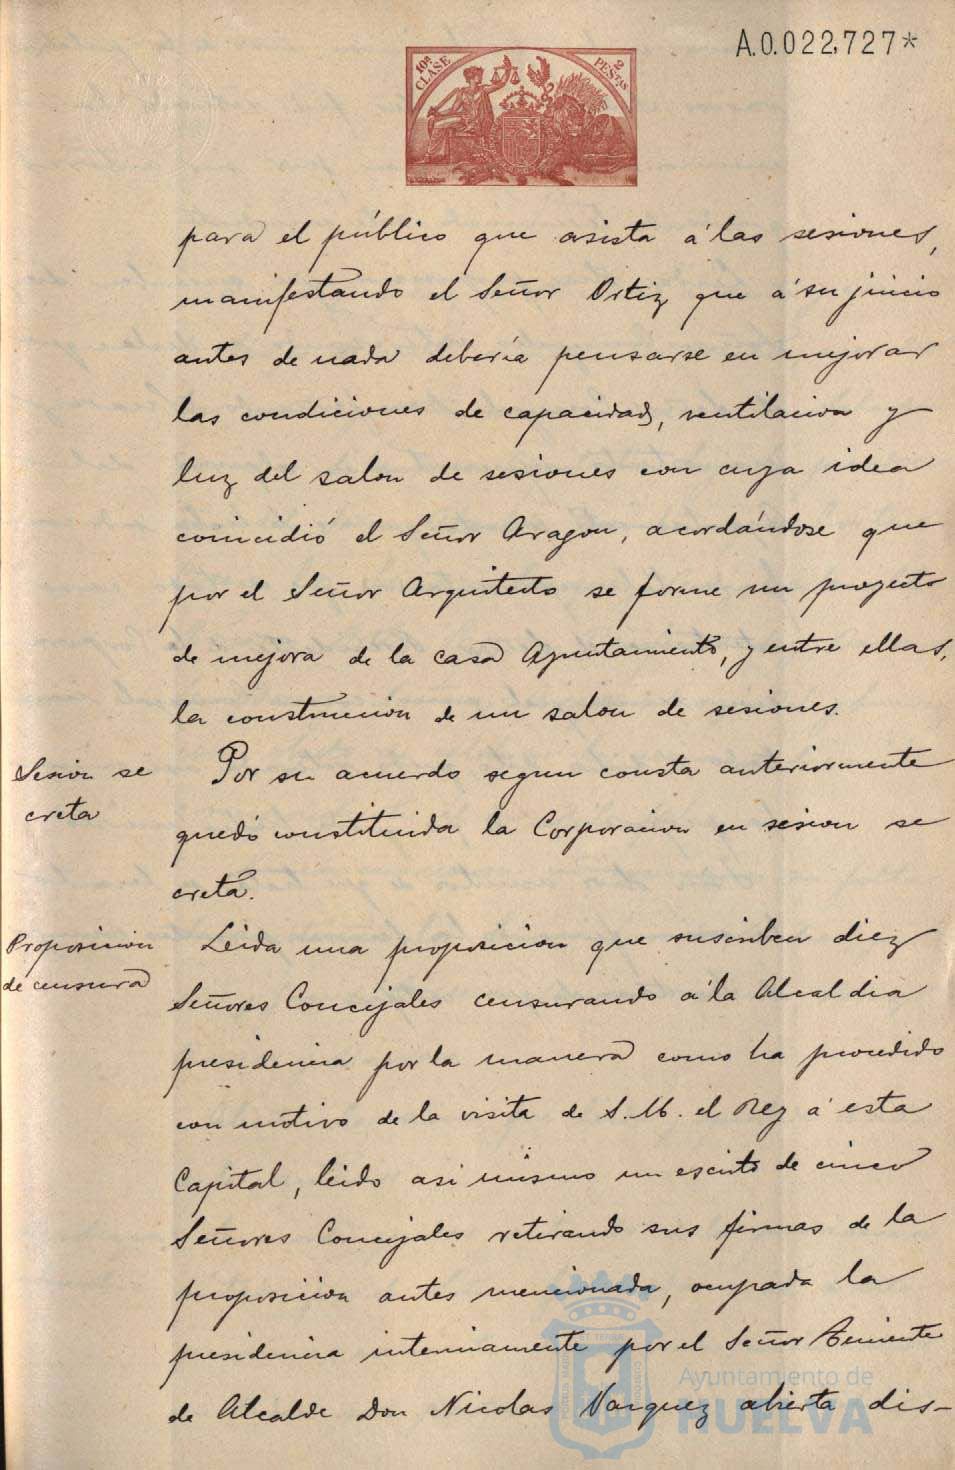 A.0.022,727*
10ª CLASE
2 PESETAS
para el público que asista á las sesiones,
manifestando el Señor Ortiz que á su juicio
antes de nada debería pensarse en mejorar
las condiciones de capacidad, ventilacion y
luz del salon de sesiones con cuya idea
coincidió el Señor Aragon, acordándose que
por el Señor Arquitecto se forme un proyecto
de mejora de la casa Ayuntamiento, y entre ellas,
la construccion de un salon de sesiones.
Sesion se
creta
Por su acuerdo segun consta anteriormente
quedó constituida la Corporacion en sesion se
creta.
Proposicion
de censura
Leida una proposicion que suscriben diez
Señores Concejales censurando á la Alcaldia
presidencia por la manera como ha procedido
con motivo de la visita de S.M. el Rey á esta
Capital, leido asi mismo un escrito de cinco
Señores Concejales retirando sus firmas de la
proposicion antes mencionada, ocupada la
presidencia interinamente por el Señor Teniente
de Alcalde Don Nicolas Vazquez abierta dis-
Ayuntamiento de
HUELVA